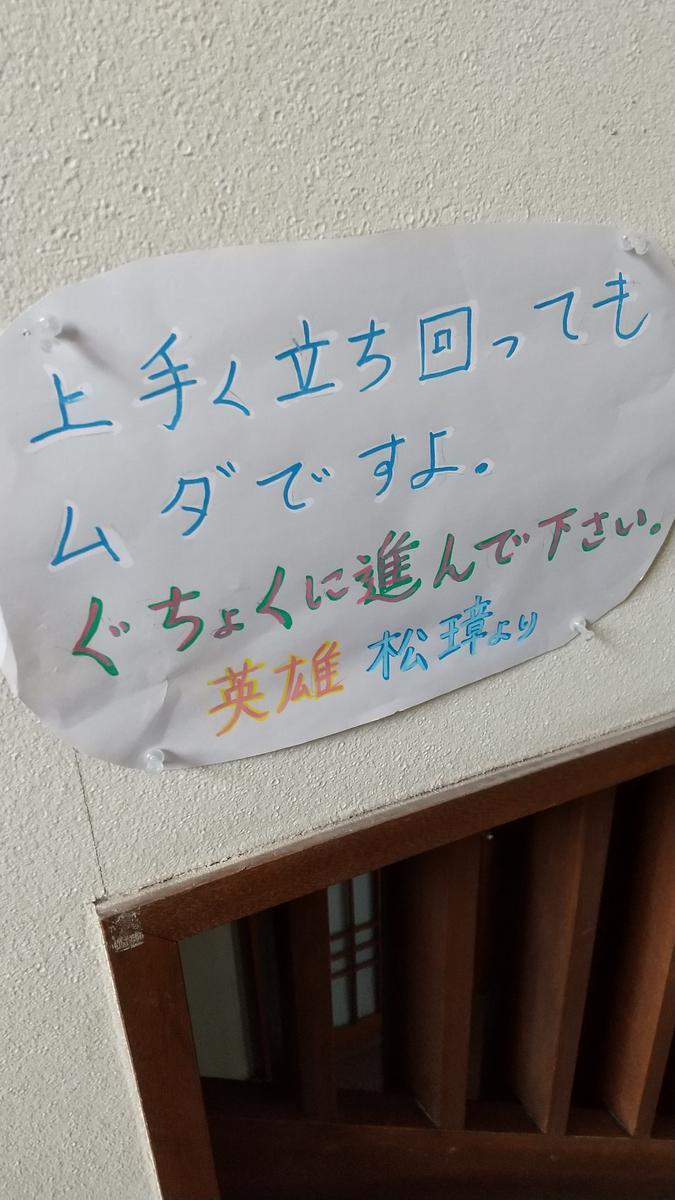 上手く立ち回っても
ムダですよ。
ぐちょくに進んで下さい。
英雄 松璋より